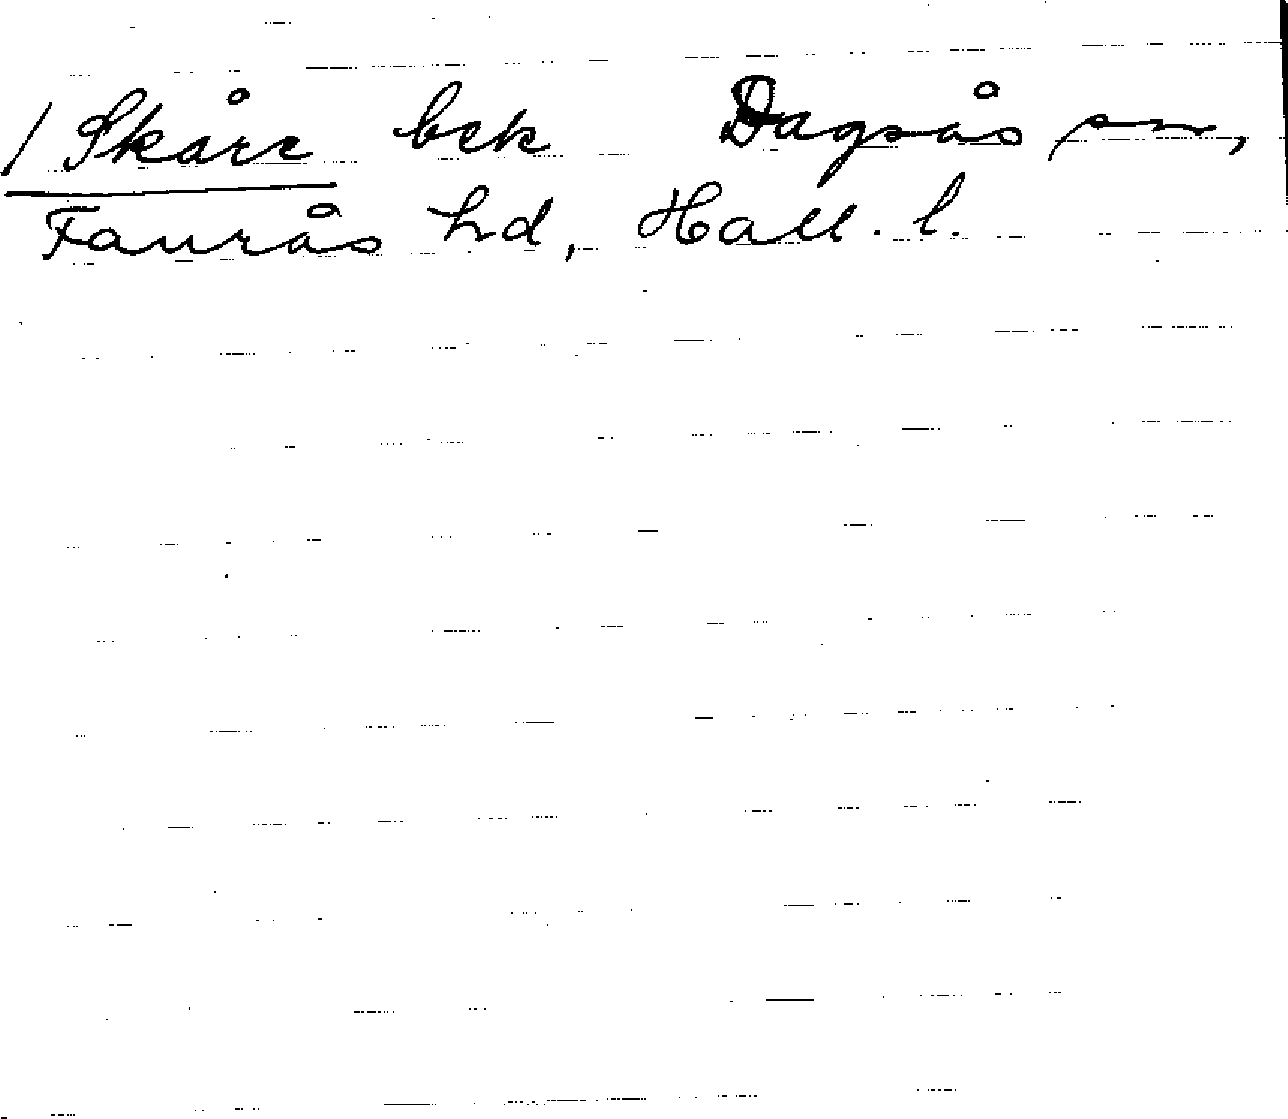 / Skåre bek Dagsås sn,
Faurås hd, Hall. l.